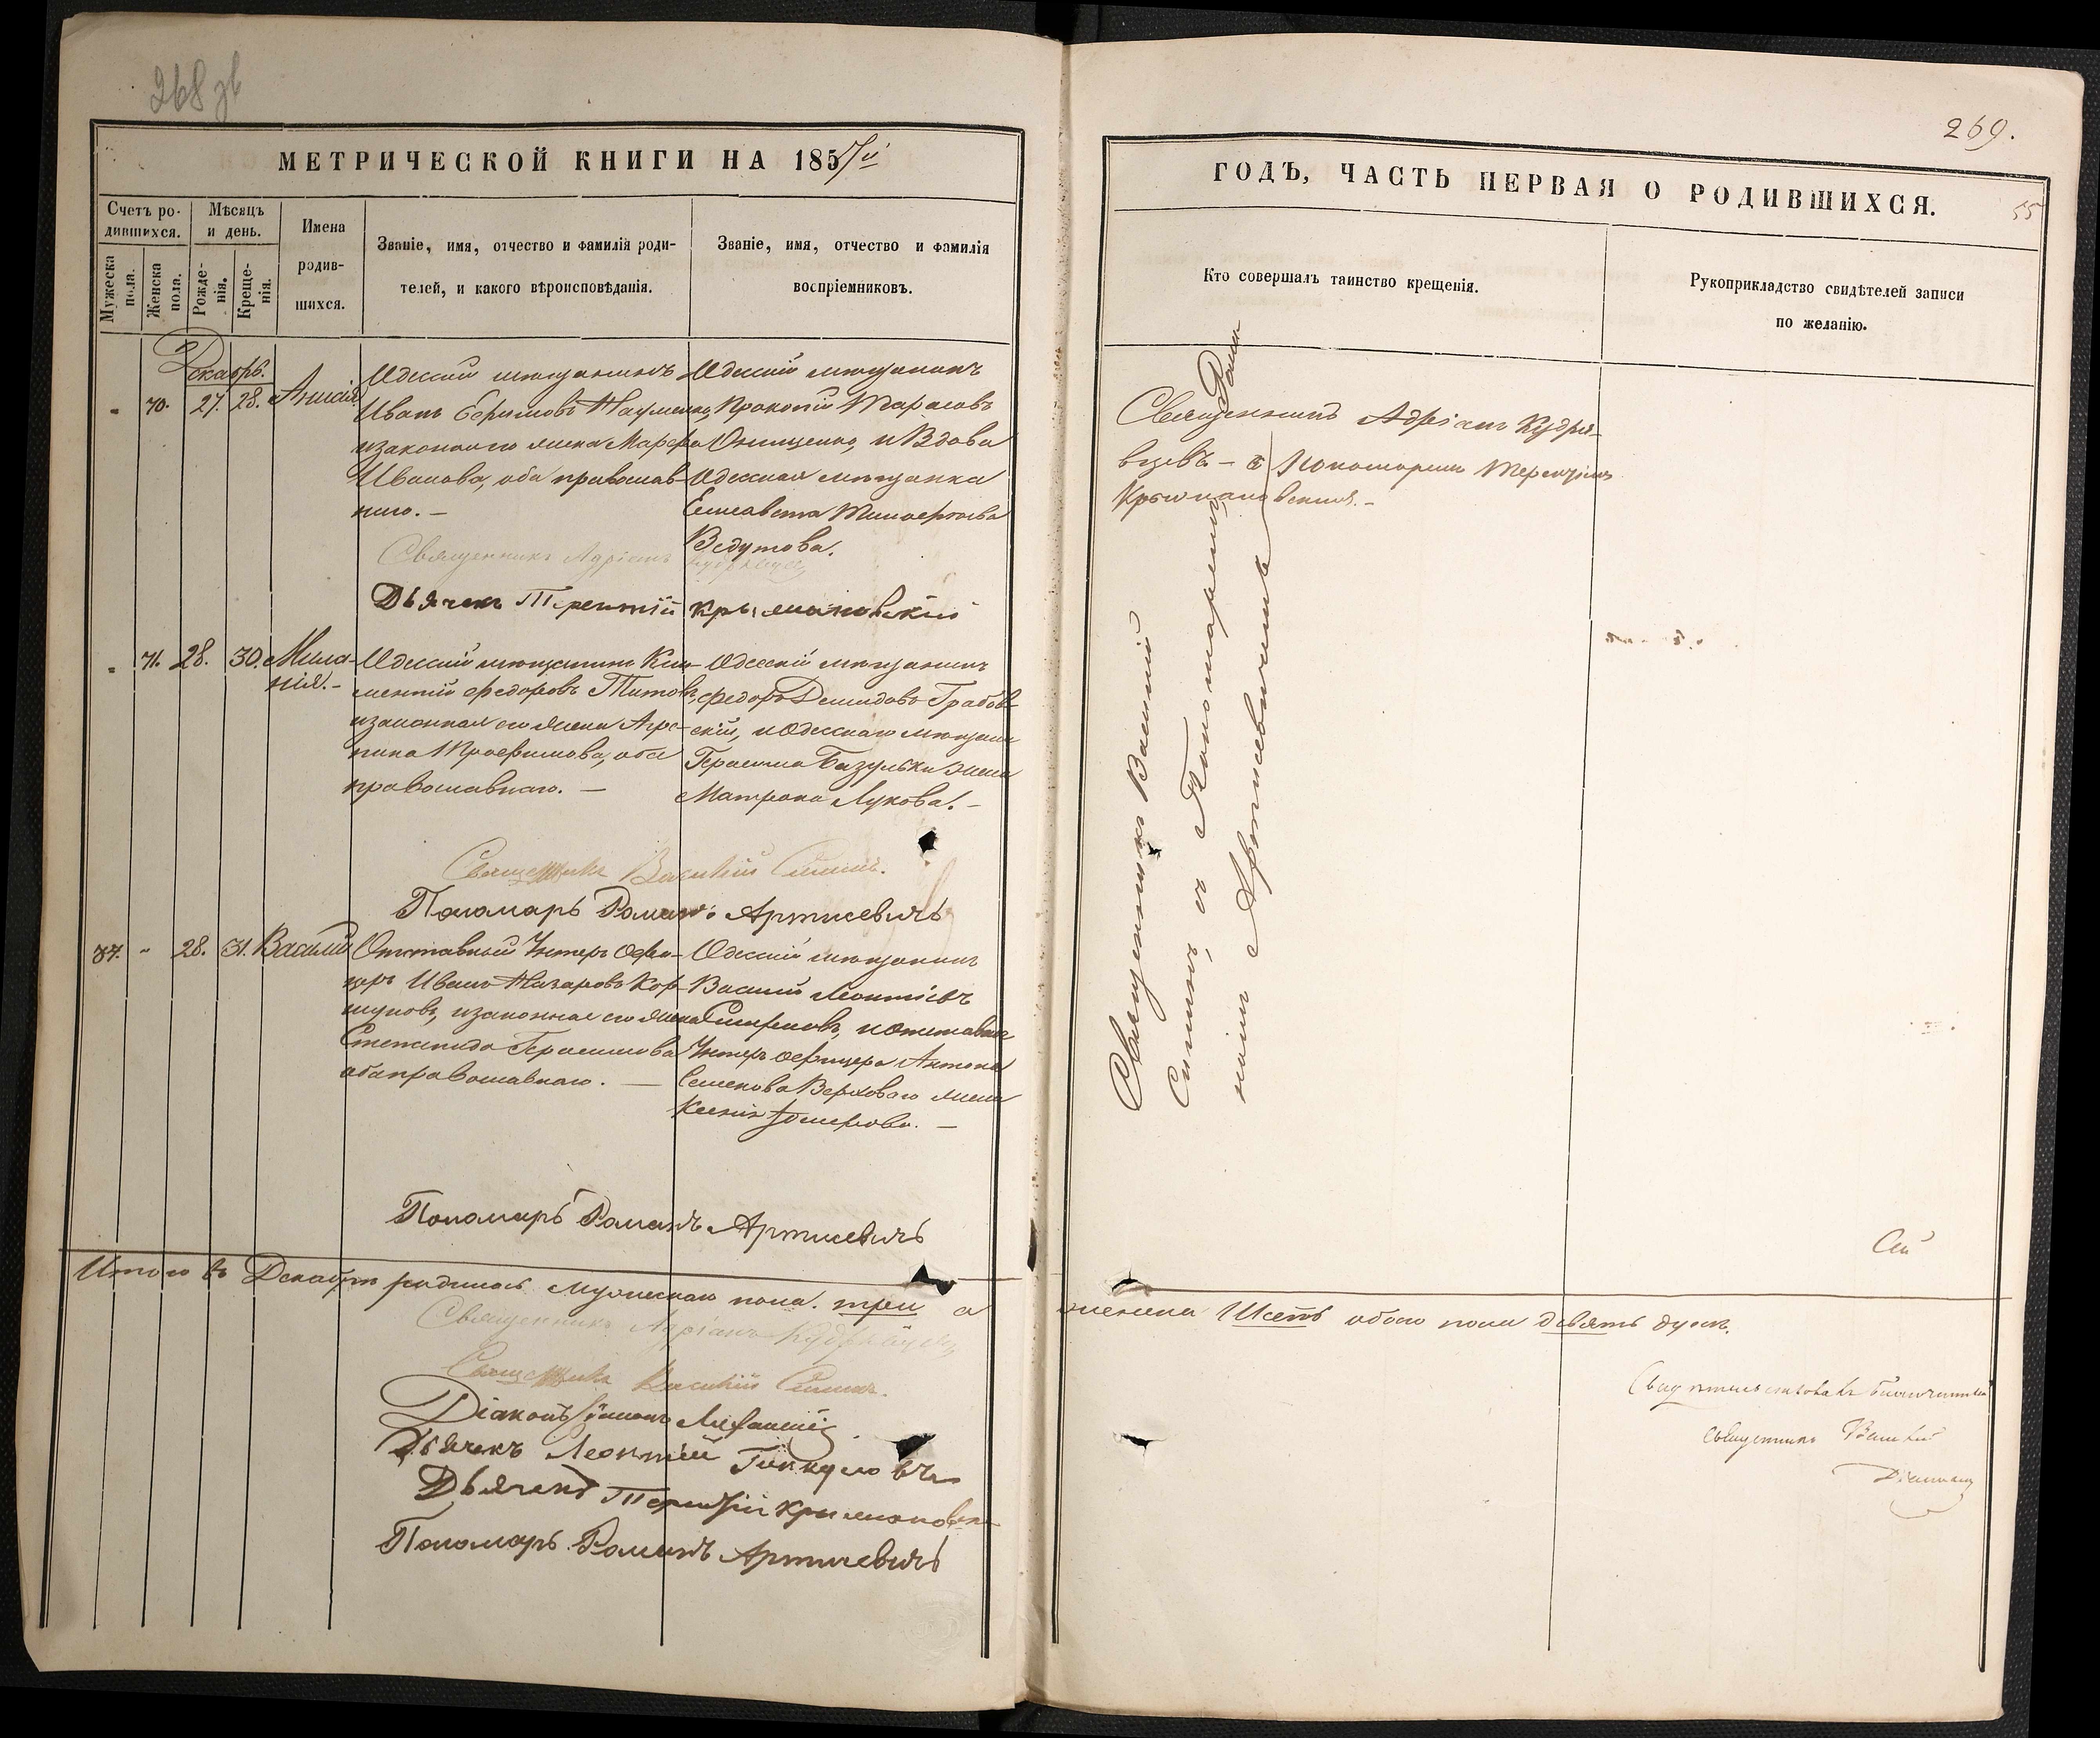 268 зв
МЕТРИЧЕСКОЙ КНИГИ НА 1857й
Счетъ ро-
дившихся.
Мѣсяцъ
и день.
Имена
родив-
шихся.
Мужеска
пола.
Женска
пола.
Рожде-
нія.
Креще-
нія.
Званіе, имя, отчество и фамилія роди-
телей, и какого вѣроисповѣданія.
Званіе, имя, отчество и фамилія
воспріемниковъ.
Декабрь.
" 70. 27. 28. Анисія
Одесскій мѣщанинъ
Иванъ Ефимовъ Науменко,
и законная жена Марфа
Иванова, оба православ-
наго. –
Одесскій мѣщанинъ
Прокопій Тарасовъ
Онищенко, и вдова
Одесская мѣщанка
Елисавета
Ведутова.
Священникъ Адріанъ Кудрявцевъ
Дьячекъ Терентій Крыжановскій
" 71. 28. 30. Мила-
нія. –
Одесскій мѣщанинъ Кли-
ментій Федоровъ Титовъ,
и законная его жена Агри-
пина Трофимова, оба
православнаго. –
Одесскій мѣщанинъ
Федоръ Демидовъ Грабов-
скій, и Одесскаго мѣщани
Герасима Базульки жена
Матрона Лукова. –
Священникъ Василій
Пономарь Романъ Артисевичъ
37. " 28. 31. Василій
Отставной Унтеръ Офи-
церъ Иванъ Назаровъ Кор-
шуновъ, и законная его жена
Степанида Герасимова
оба православнаго. –
Одесскій мѣщанинъ
Василій Леонтіевъ
Смирновъ, и отставнаго
Унтеръ офицера Антона
Семенова Верховаго жена
Ксенія
Пономарь Романъ Артисевичъ
Итого въ Декабрѣ родилось мужескаго пола. три а
Священникъ Адріанъ Кудрявцевъ
Священникъ Василій
Діаконъ
Дьячекъ Леонтій
Дьячекъ Терентій Крыжановск
Пономарь Романъ Артисевичъ
269.
55
ГОДЪ, ЧАСТЬ ПЕРВАЯ О РОДИВШИХСЯ.
Кто совершалъ таинство крещенія.
Рукоприкладство свидѣтелей записи
по желанію.
Священникъ Адріанъ Кудря-
вцевъ – съ Пономаремъ Терентіемъ
Крыжановскимъ. –
Священникъ Василій
съ Пономаремъ Рома-
номъ Артисевичемъ
Сей
женска Шесть обоего пола девять душъ.
Свидѣтельствовалъ Благочинный
Священникъ Василій